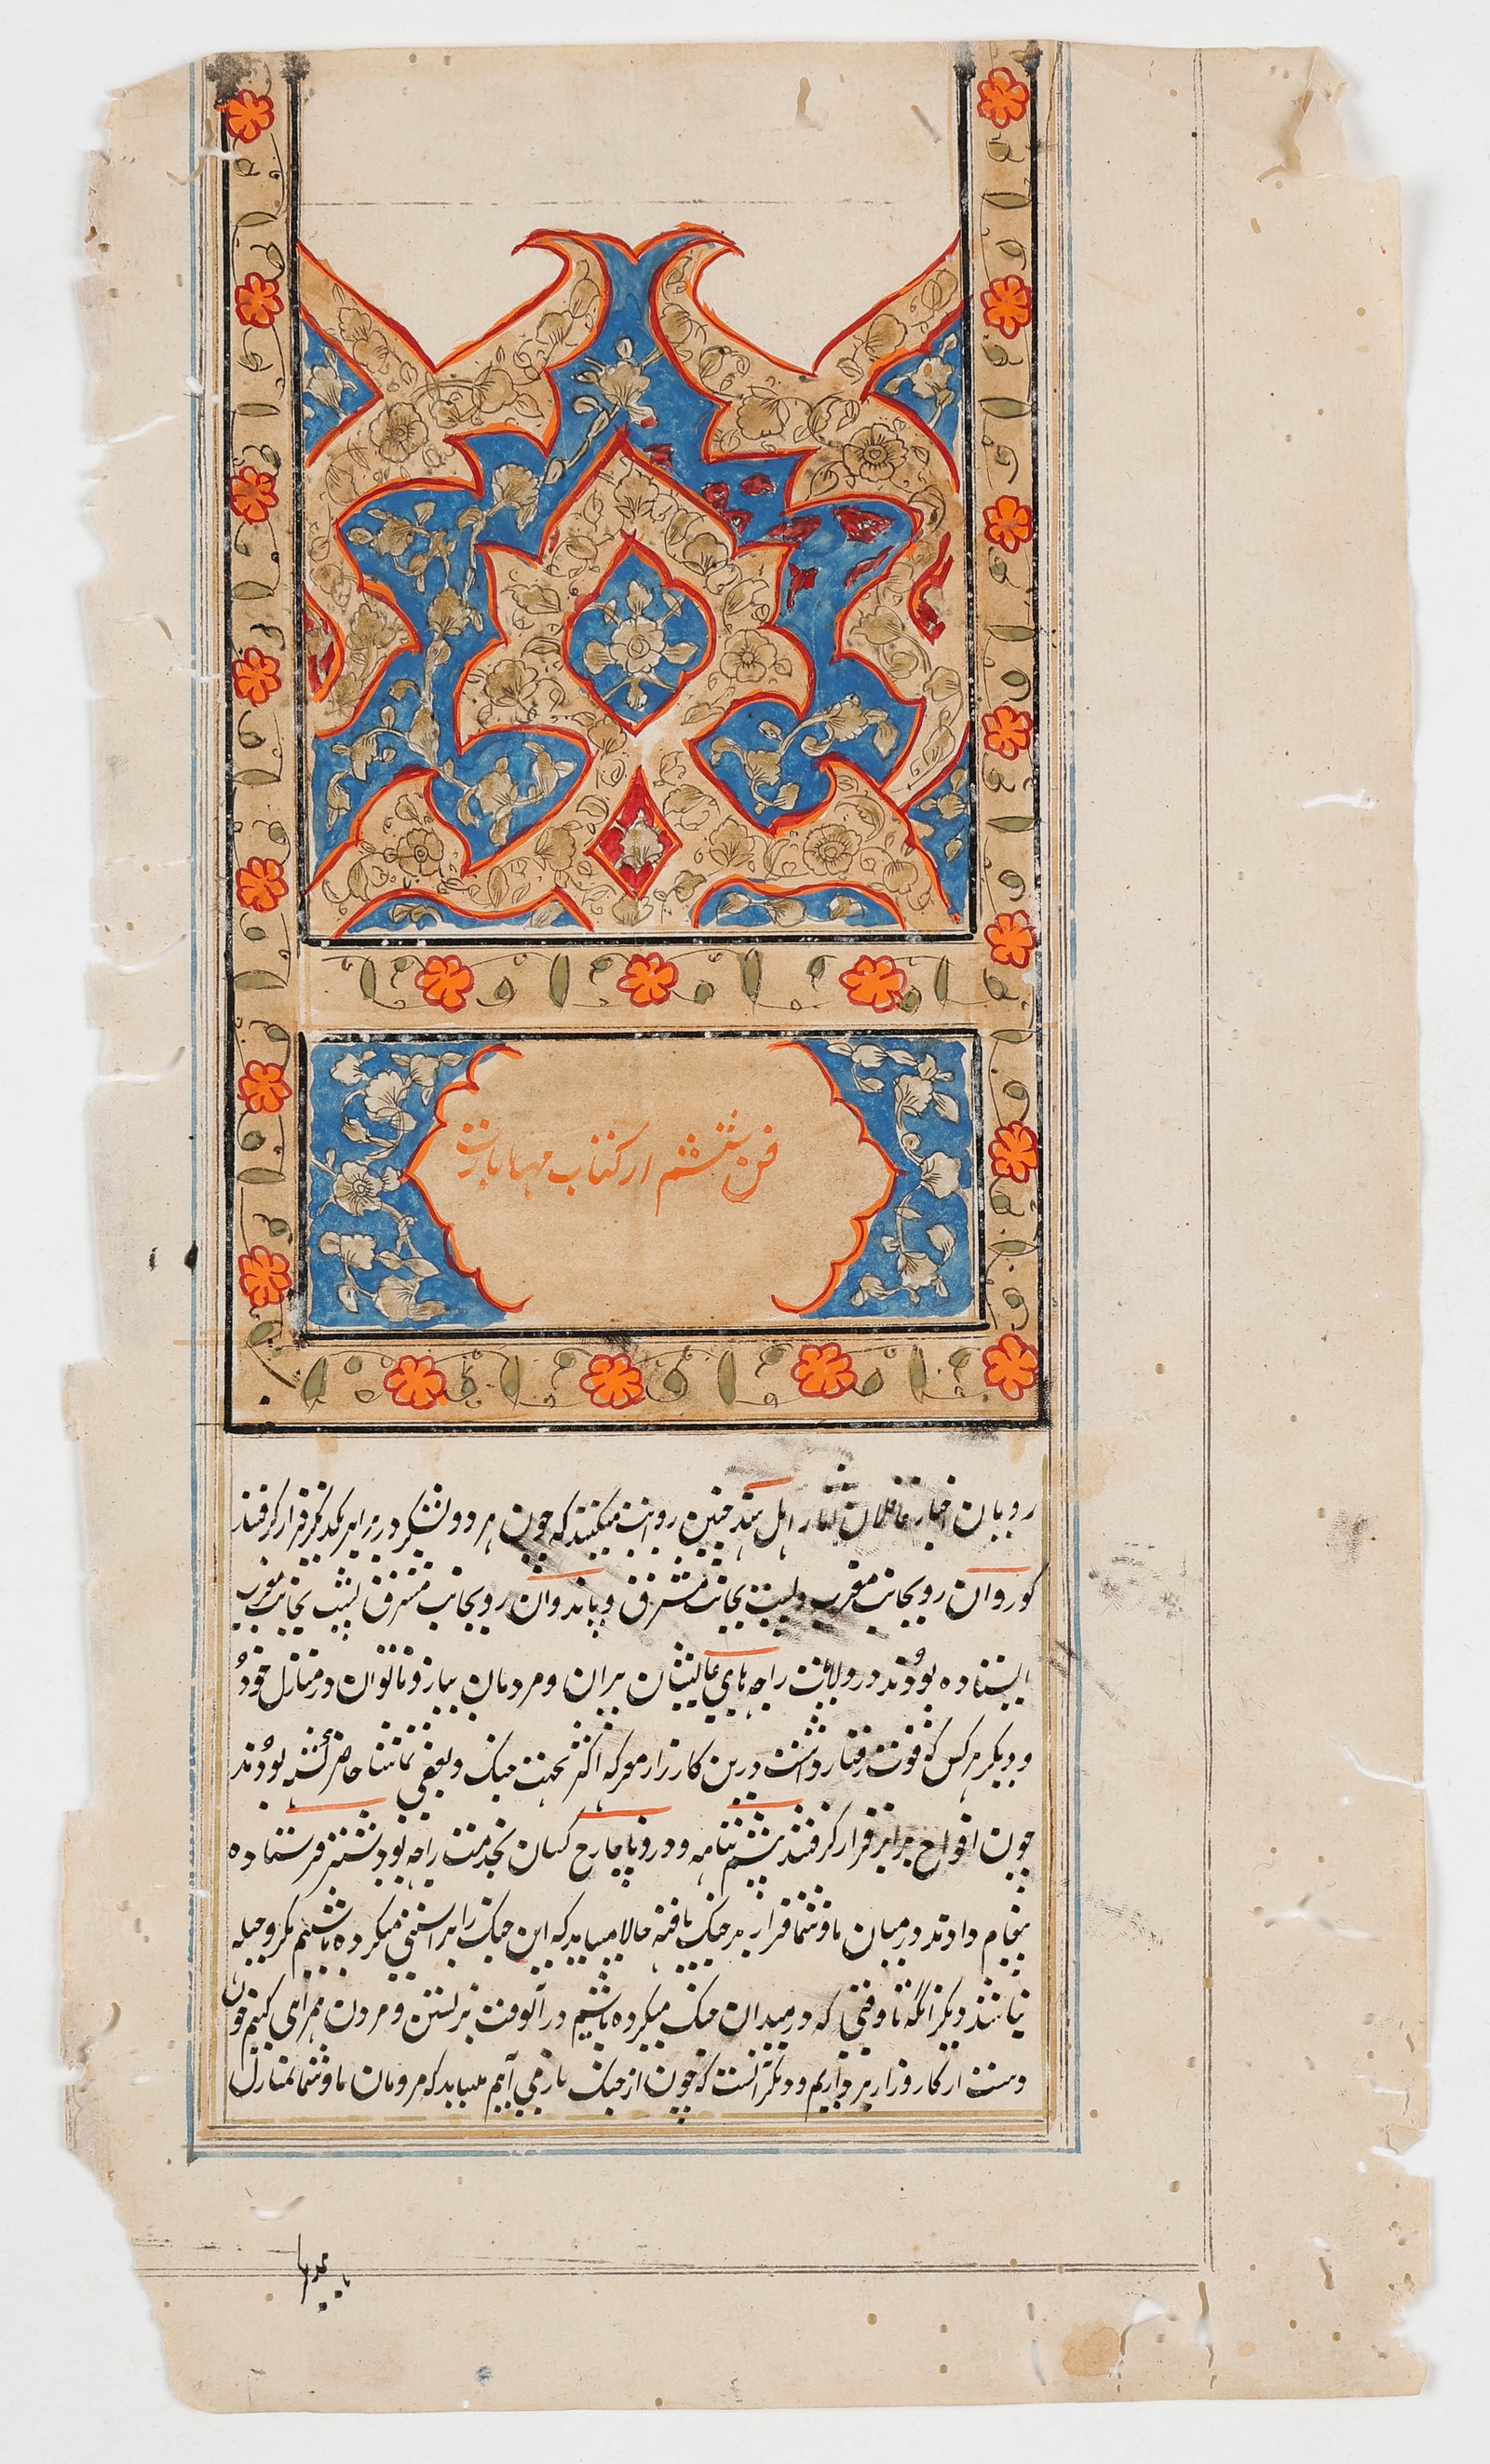 فن ششم از کتاب مهابارت
رویان اخبار ناقلان آثار اهل هند چنین روایت میکنند که چون هر دو لشکر در برابر یکدیگر قرار گرفتند
کوروان رو بجانب مغرب و پشت بجانب مشرق و پاندوان رو بجانب مشرق پشت بجانب مغرب
ایستاده بودند در ولایت راجه های عالیشان پیران و مردمان بیمار و ناتوان در منازل خود
و دیگر هر کس که قوت رفتار داشت درین کارزار معرکه اکثر بجهت جنک و بعضی بتماشا حاضر گشته بودند
چون افواج برابر قرار گرفتند بهیشم پتامه و درونا چارج کسان بخدمت راجه جودهشتر فرستاده
پیغام دادند در میان ما و شما قرار بر جنک یافته حالا میباید که این جنک را براستی میکرده باشیم مکر و حیله
نباشد دیگر انکه تا وقتی که در میدان جنک میکرده باشیم در آنوقت بزیستن و مردن همراهی کنیم چون
دست از کارزار برداریم و دیگر آنست که چون از جنک باز می آیم میباید که مردمان ما و شما بمنازل